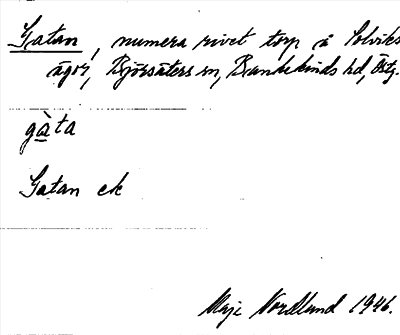 Gatan, numera rivet torp å Solviks
ägor, Björsäters sn, Bankekinds hd, Östg.
gàta
Gatan ek
Maje Nordlund 1946.